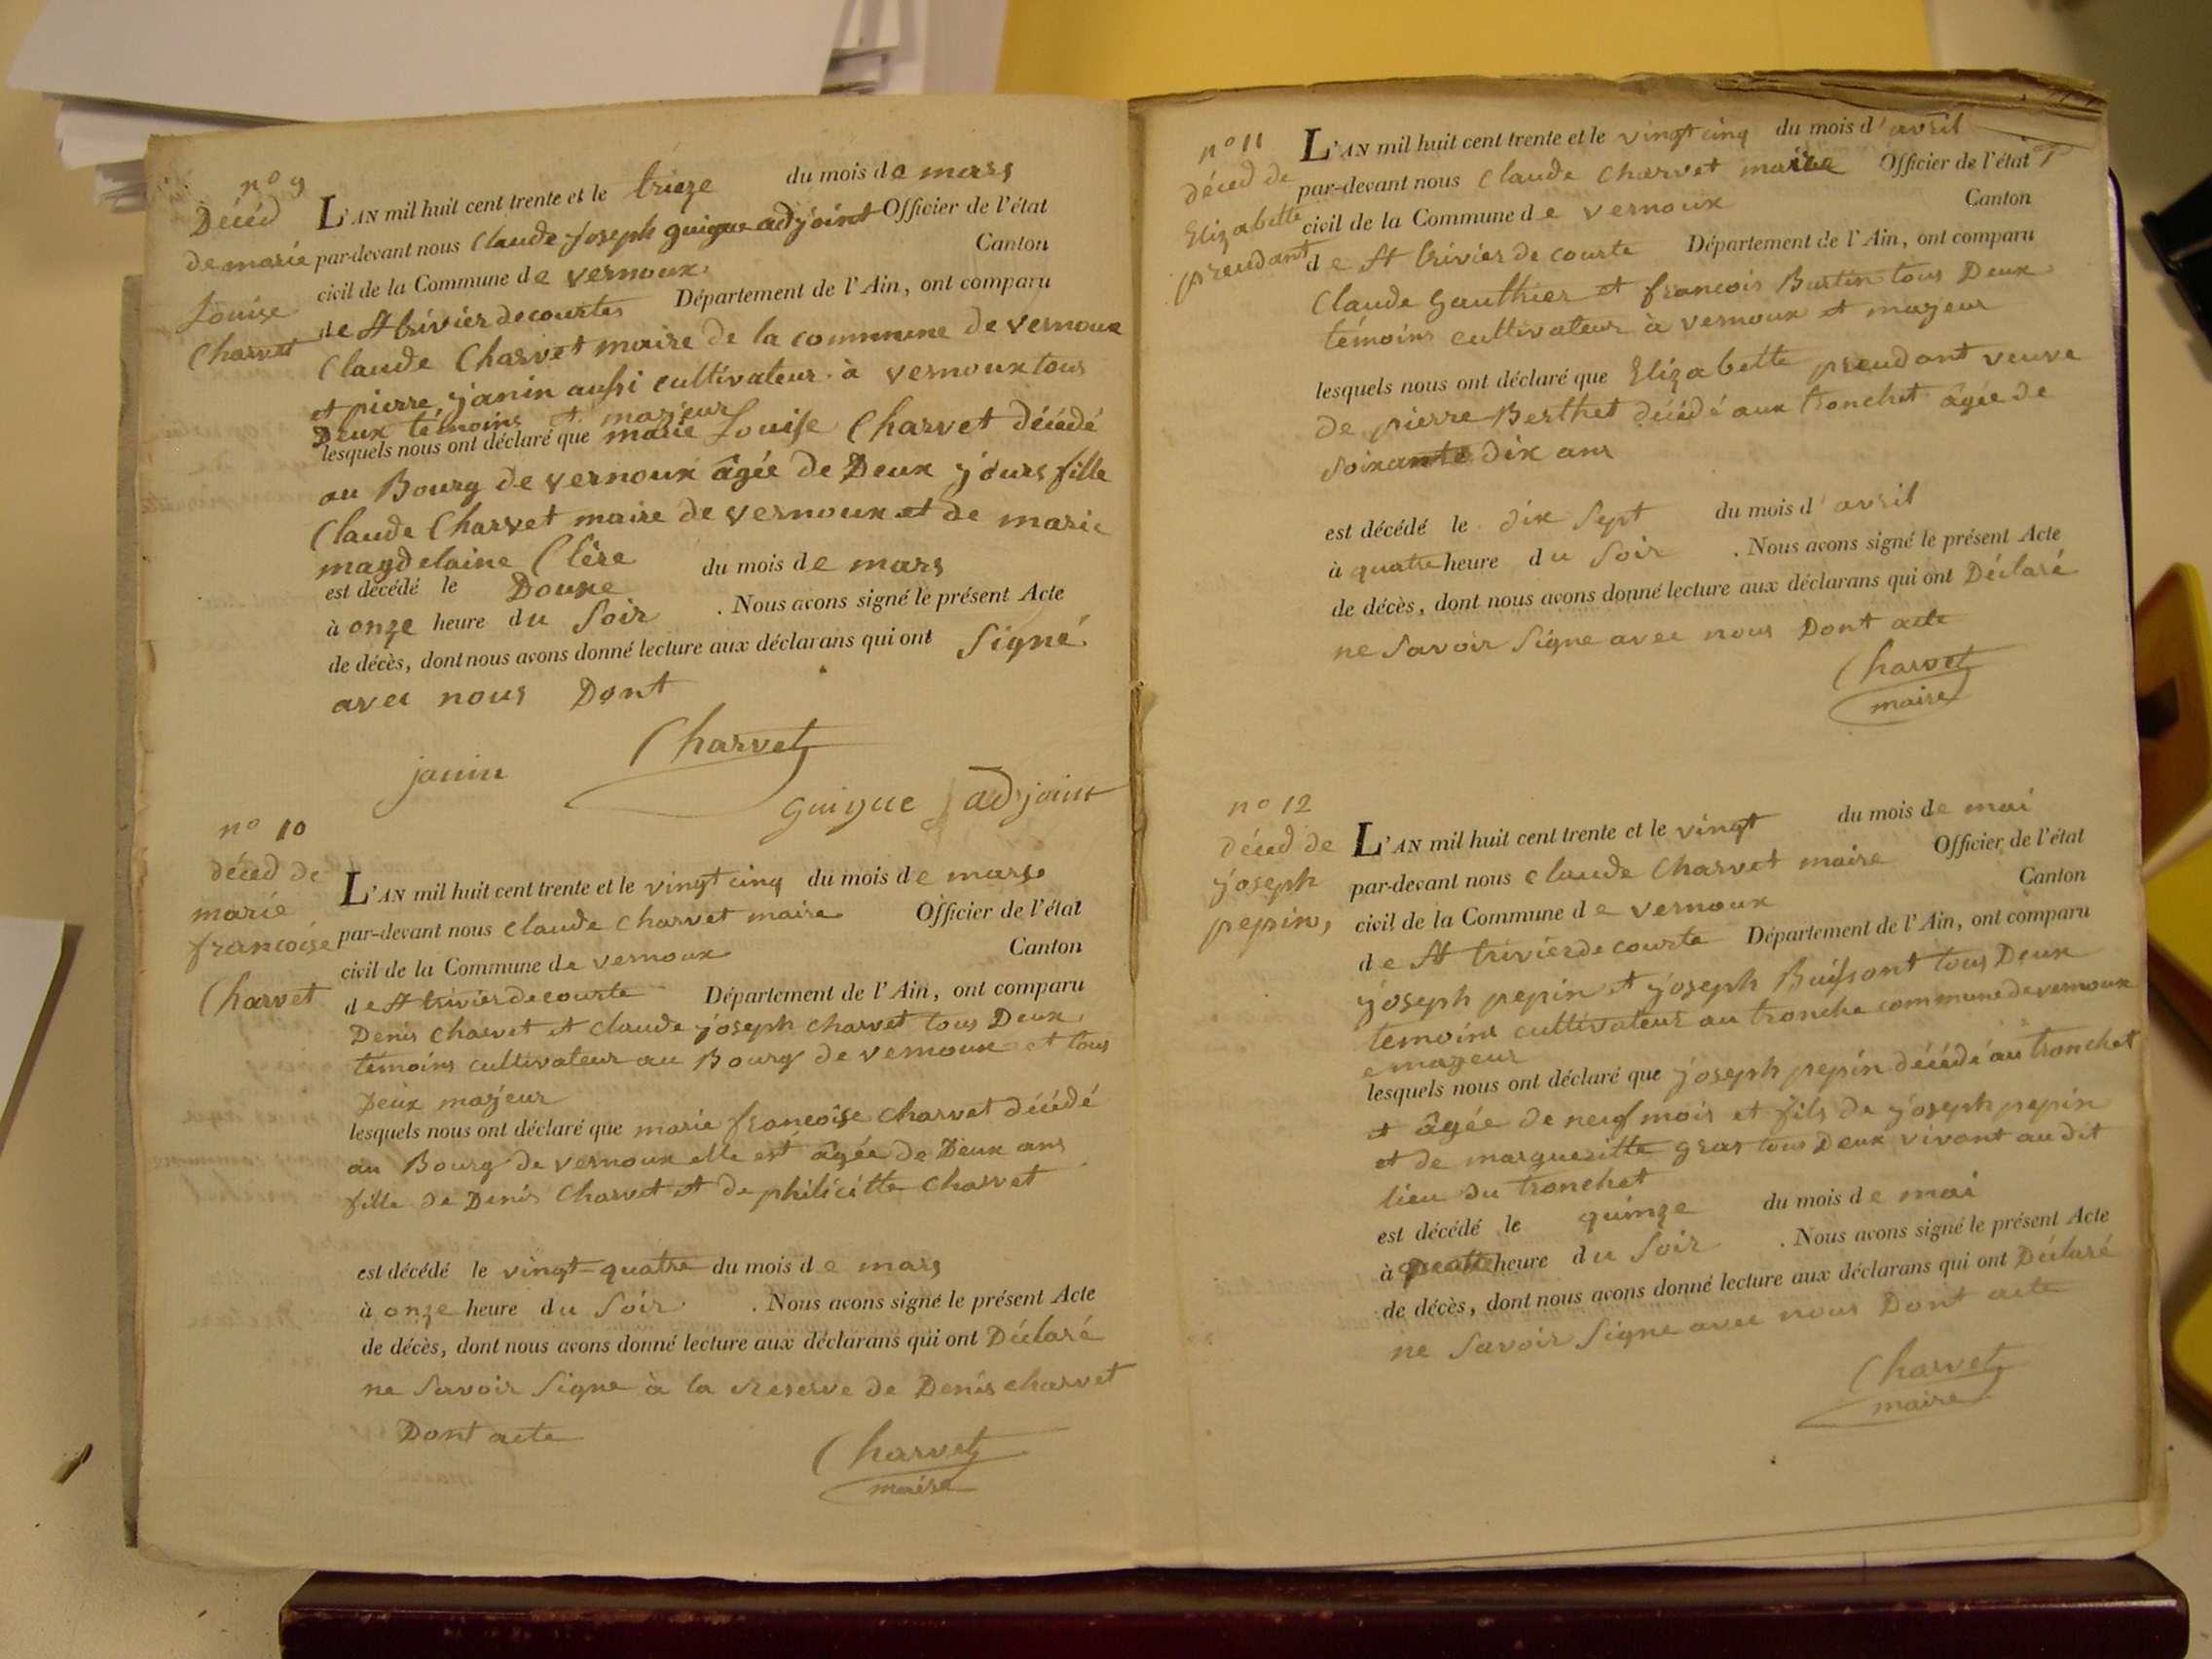 n° 9
Décéd
de marie
Louise
Charvet
L'AN mil huit cent trente et le trieze du mois de mars
par-devant nous Claude joseph guigue adjoint Officier de l'état
civil de la Commune de vernoux Canton
de st trivier de courtes Département de l'Ain, ont comparu
Claude Charvet maire de la commune de vernoux
et pierre janin aussi cultivateur à vernoux tous
Deux témoins et majeur
lesquels nous ont déclaré que marie Louise Charvet décédé
au Bourg de vernoux âgée de Deux jours fille
Claude Charvet maire de vernoux et de marie
magdelaine Clère
est décédé le Douxe du mois de mars
à onze heure du Soir . Nous avons signé le présent Acte
de décès, dont nous avons donné lecture aux déclarans qui ont Signé
avec nous Dont
Charvet
janin
guigue adjoint
n° 10
décéd de
marie
francoise
Charvet
L'AN mil huit cent trente et le vingt cinq du mois de mars
par-devant nous Claude Charvet maire Officier de l'état
civil de la Commune de vernoux Canton
de st trivier de courte Département de l'Ain, ont comparu
Denis Charvet et Claude joseph charvet tous Deux
témoins cultivateur au Bourg de vernoux et tous
Deux majeur
lesquels nous ont déclaré que marie francoise Charvet décédé
au Bourg de vernoux elle est âgée de Deux ans
fille de Denis Charvet et de philicitte Charvet
est décédé le vingt-quatre du mois de mars
à onze heure du Soir . Nous avons signé le présent Acte
de décès, dont nous avons donné lecture aux déclarans qui ont Déclaré
ne Savoir Signe à la reserve de Denis charvet
Dont acte
Charvet
maire
n° 11
décéd de
Elizabette
preudant
L'AN mil huit cent trente et le vingt cinq du mois d'avril
par-devant nous Claude Charvet maire Officier de l'état
civil de la Commune de vernoux Canton
de st trivier de courte Département de l'Ain, ont comparu
Claude Gauthier et francois Burtin tous Deux
témoins cultivateur à vernoux et majeur
lesquels nous ont déclaré que Elizabette preudant veuve
de pierre Berthet décédé aux tronchet âgée de
soixante dix ans
est décédé le dix Sept du mois d'avril
à quatre heure du Soir . Nous avons signé le présent Acte
de décès, dont nous avons donné lecture aux déclarans qui ont Déclaré
ne Savoir Signe avec nous Dont acte
Charvet
maire
n° 12
décéd de
joseph
pepin,
L'AN mil huit cent trente et le vingt du mois de mai
par-devant nous Claude Charvet maire Officier de l'état
civil de la Commune de vernoux Canton
de st trivier de courte Département de l'Ain, ont comparu
joseph pepin et joseph Buissont tous Deux
temoins cultivateur au tronche commune de vernoux
e mageur
lesquels nous ont déclaré que joseph pepin décédé au tronchet
et âgée de neuf mois et fils de joseph pepin
et de margueritte gras tous Deux vivant au dit
lieu du tronchet
est décédé le quinze du mois de mai
à quatre heure du Soir . Nous avons signé le présent Acte
de décès, dont nous avons donné lecture aux déclarans qui ont Déclaré
ne Savoir Signe avec nous Dont acte
Charvet
maire